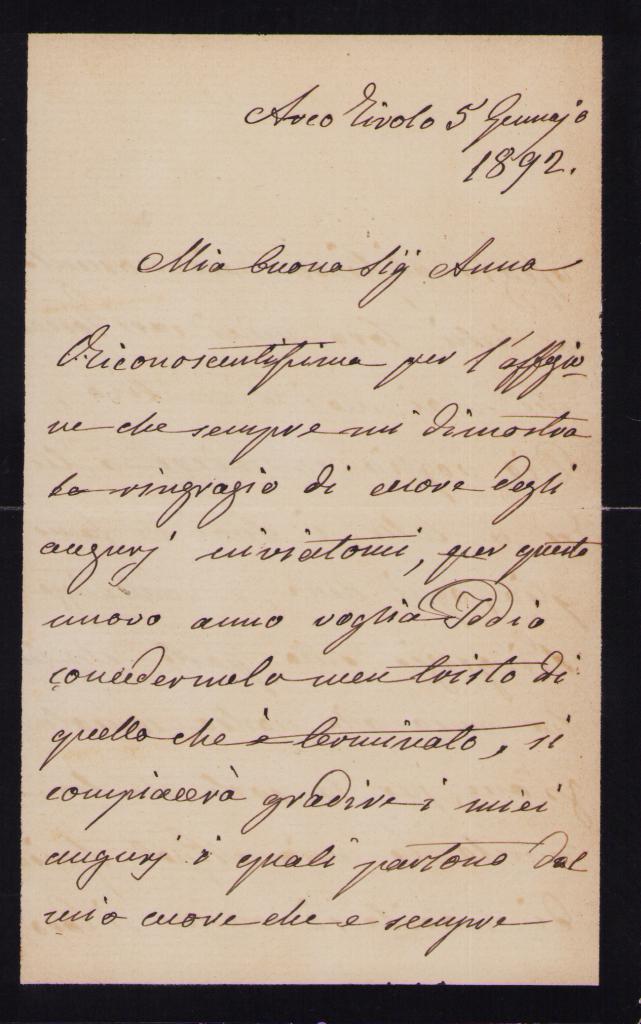 Arco Tirolo 5 Gennajo
1892.
Mia buona Sigͣ Anna
Riconoscentissima per l'affezio-
ne che sempre mi dimostra
La ringrazio di cuore degli
augurj inviatomi, per questo
nuovo anno voglia Iddio
concedermelo men tristo di
quello che è terminato, si
compiacerà gradire i miei
augurj i quali partono dal
mio cuore che e sempre